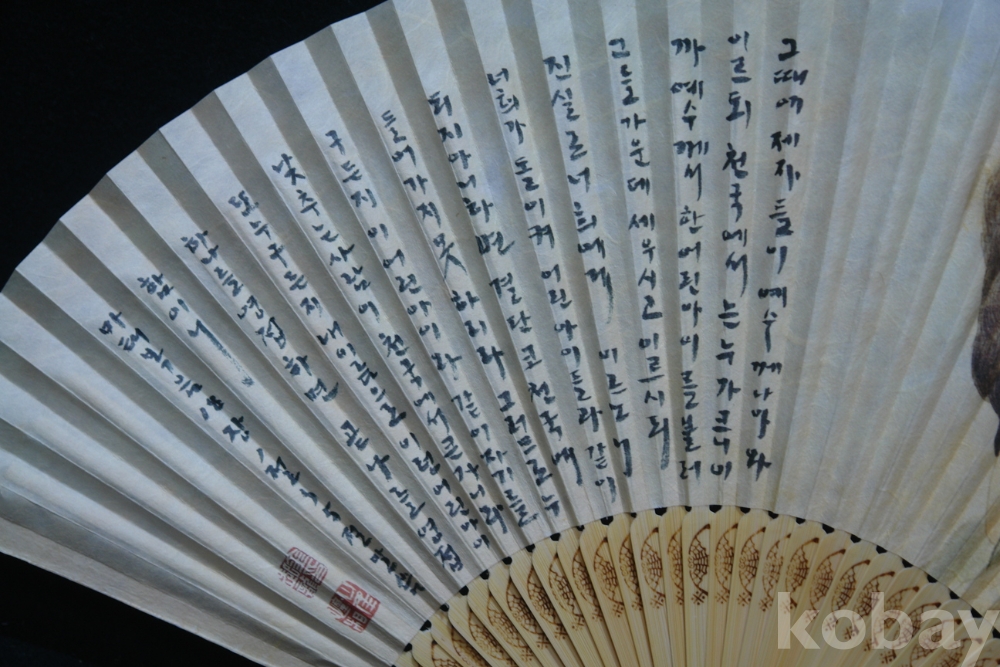 그때에 제자들이 예수께 나아와
이르되 천국에서는 누가 크니이
까 예수께서 한 어린아이를 불러
그들 가운데 세우시고 이르시되
진실로 너희에게 이르노니
너희가 돌이켜 어린아이들과 같이
되지 아니하면 결단코 천국에
들어가지 못하리라 그러므로 누
구든지 이 어린아이와 같이 자기를
낮추는 사람이 천국에서 큰 자니라
또 누구든지 내 이름으로 이런 어린아이
하나를 영접하면 곧 나를 영접
함이니
마태복음 18장 1절~5절 말씀
kobay